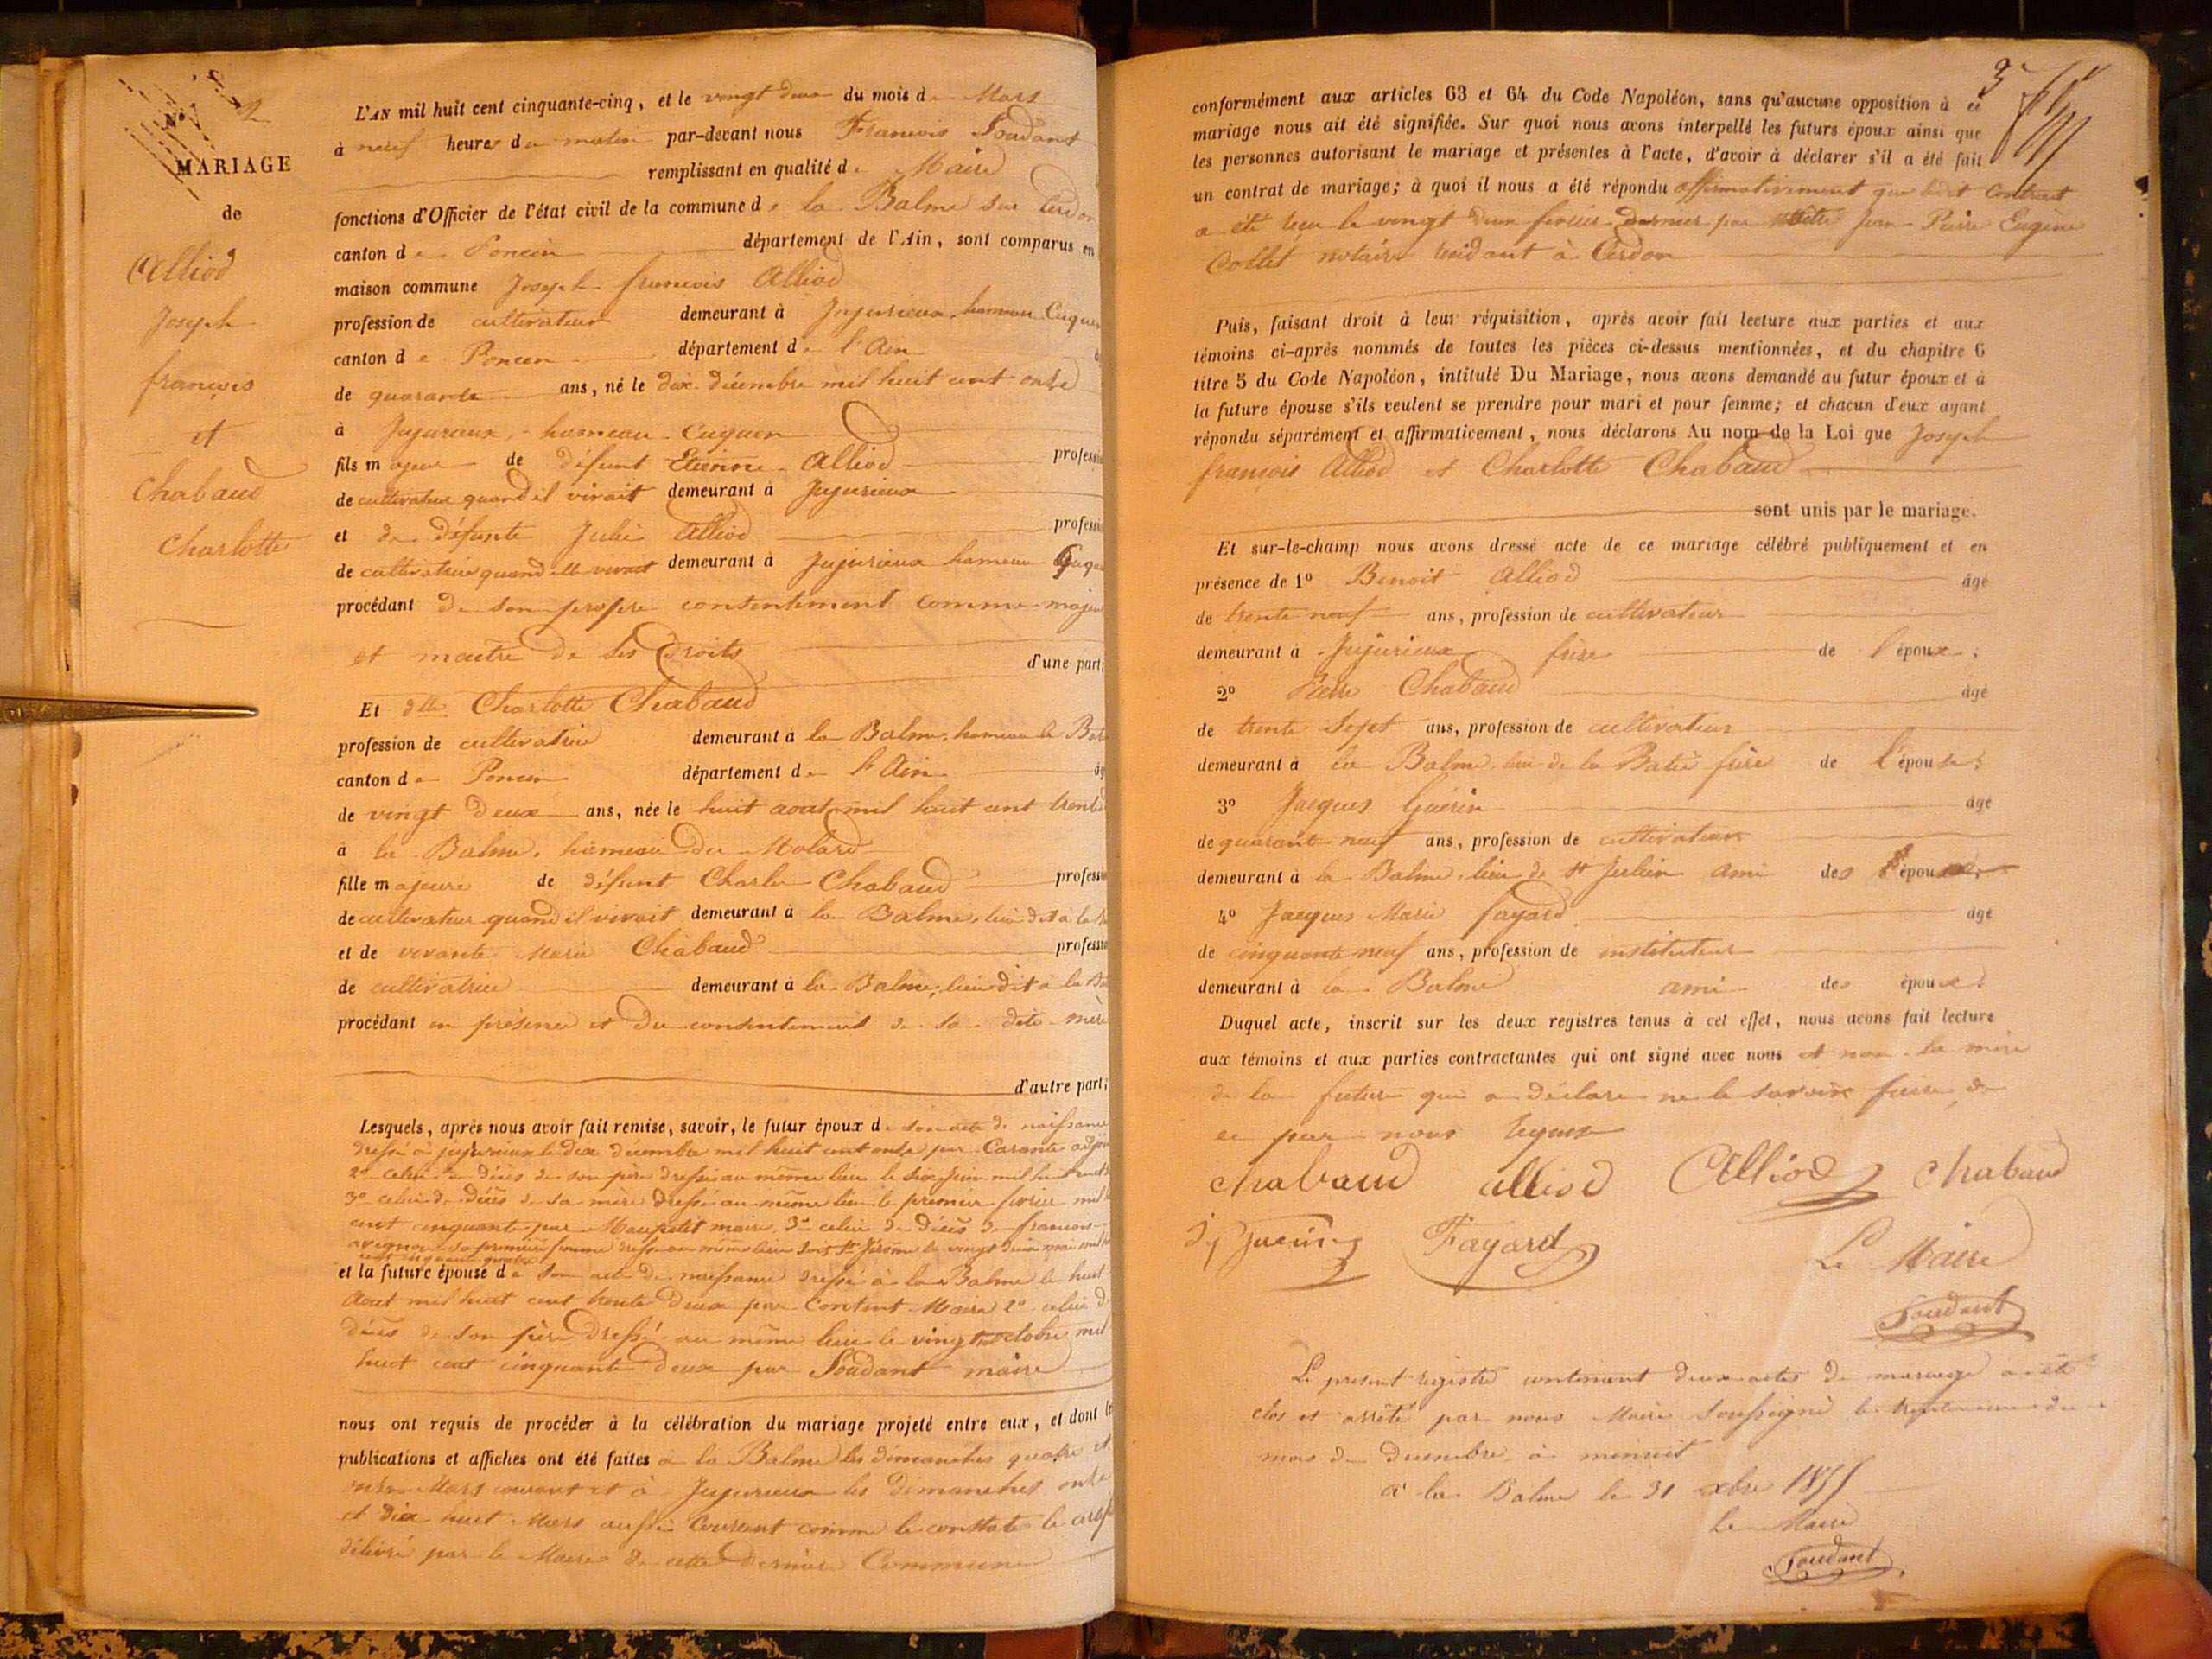 N° 2
MARIAGE
de
Alliod
Joseph
françois
et
Chabaud
Charlotte
L'AN mil huit cent cinquante-cinq, et le vingt deux du mois de Mars
à neuf heures du matin par-devant nous François Soudant
remplissant en qualité de Maire
fonctions d'Officier de l'état civil de la commune de la Balme sur Cerdon
canton de Poncin département de l'Ain, sont comparus en
maison commune Joseph françois Alliod
profession de cultivateur demeurant à Jujurieux, hameau Cuquen
canton de Poncin département de l'Ain
de quarante ans, né le dix décembre mil huit cent onze
à Jujurieux, hameau Cuquen
fils majeur de défunt Etienne Alliod professi
de cultivateur quand il vivait demeurant à Jujurieux
et de défunte Julie Alliod professi
de cultivatrice quand elle vivait demeurant à Jujurieux hameau Cuque
procédant de son propre consentement comme majeur
et maître de ses droits d'une part;
Et dlle Charlotte Chabaud
profession de cultivatrice demeurant à la Balme, hameau la Bat
canton de Poncin département de l'Ain âg
de vingt deux ans, née le huit aout mil huit cent trente
à la Balme, hameau du Molard
fille majeure de défunt Charles Chabaud professi
de cultivateur quand il vivait demeurant à la Balme, lieu dit à la Ba
et de vivante Marie Chabaud professi
de cultivatrice demeurant à la Balme, lieu dit à la Ba
procédant en présence et du consentement de sa dite mère
d'autre part;
Lesquels, après nous avoir fait remise, savoir, le futur époux de son acte de naissance
dressé à jujurieux le dix décembre mil huit cent onze par Carante adjoin
2° celui de décès de son père dressé au même lieu le six juin mil huit cent
3° celui de décès de sa mère dressé au même lieu le premier fevrier mil
cent cinquante par Maupetit maire, 3° celui de décès de francoise
sa premiere femme dressé au même lieu St Jérôme le vingt deux mai mil
cent cinquante quatre
et la future épouse de son acte de naissance dressé à la Balme le huit
Aout mil huit cent trente deux par Content Maire 2° celui de
décès de son père dressé au même lieu le vingt octobre mil
huit cent cinquante deux par Soudant maire
nous ont requis de procéder à la célébration du mariage projeté entre eux, et dont les
publications et affiches ont été faites à la Balme les dimanches quatre et
onze Mars courant et à Jujurieux les dimanches onze
et dix huit Mars aussi courant comme le constate le certif
délivré par le Maire de cette dernière Commune
3
conformément aux articles 63 et 64 du Code Napoléon, sans qu'aucune opposition à ce
mariage nous ait été signifiée. Sur quoi nous avons interpellé les futurs époux ainsi que
les personnes autorisant le mariage et présentes à l'acte, d'avoir à déclarer s'il a été fait
un contrat de mariage; à quoi il nous a été répondu affirmativement que ledit Contrat
a été reçu le vingt deux fevrier dernier par Maître Jean-Pierre Eugène
Collet notaire résidant à Cerdon
Puis, faisant droit à leur réquisition, après avoir fait lecture aux parties et aux
témoins ci-après nommés de toutes les pièces ci-dessus mentionnées, et du chapitre 6
titre 5 du Code Napoléon, intitulé Du Mariage, nous avons demandé au futur époux et à
la future épouse s'ils veulent se prendre pour mari et pour femme; et chacun d'eux ayant
répondu séparément et affirmativement, nous déclarons Au nom de la Loi que Joseph
françois Alliod et Charlotte Chabaud
sont unis par le mariage.
Et sur-le-champ nous avons dressé acte de ce mariage célébré publiquement et en
présence de 1° Benoit Alliod âgé
de trente neuf ans, profession de cultivateur
demeurant à Jujurieux frère de l'époux;
2° Pierre Chabaud âgé
de trente sept ans, profession de cultivateur
demeurant à la Balme, lieu de la Batie frère de l'épouse;
3° Jacques Guérin âgé
de quarante neuf ans, profession de cultivateur
demeurant à la Balme, lieu de St Julien ami des époux
4° Jacques Marie fayard âgé
de cinquante neuf ans, profession de instituteur
demeurant à la Balme ami des époux.
Duquel acte, inscrit sur les deux registres tenus à cet effet, nous avons fait lecture
aux témoins et aux parties contractantes qui ont signé avec nous et non la mère
de la future qui a déclaré ne le savoir faire de
ce par nous requise
chabaud alliod Alliod chabaud
j Guérin Fayard Le Maire
Soudant
Le present registre contenant deux actes de mariage a été
clos et arrêté par nous Maire soussigné le trente un du
mois de decembre à minuit
à la Balme le 31 xbre 1855
Le Maire
Soudant